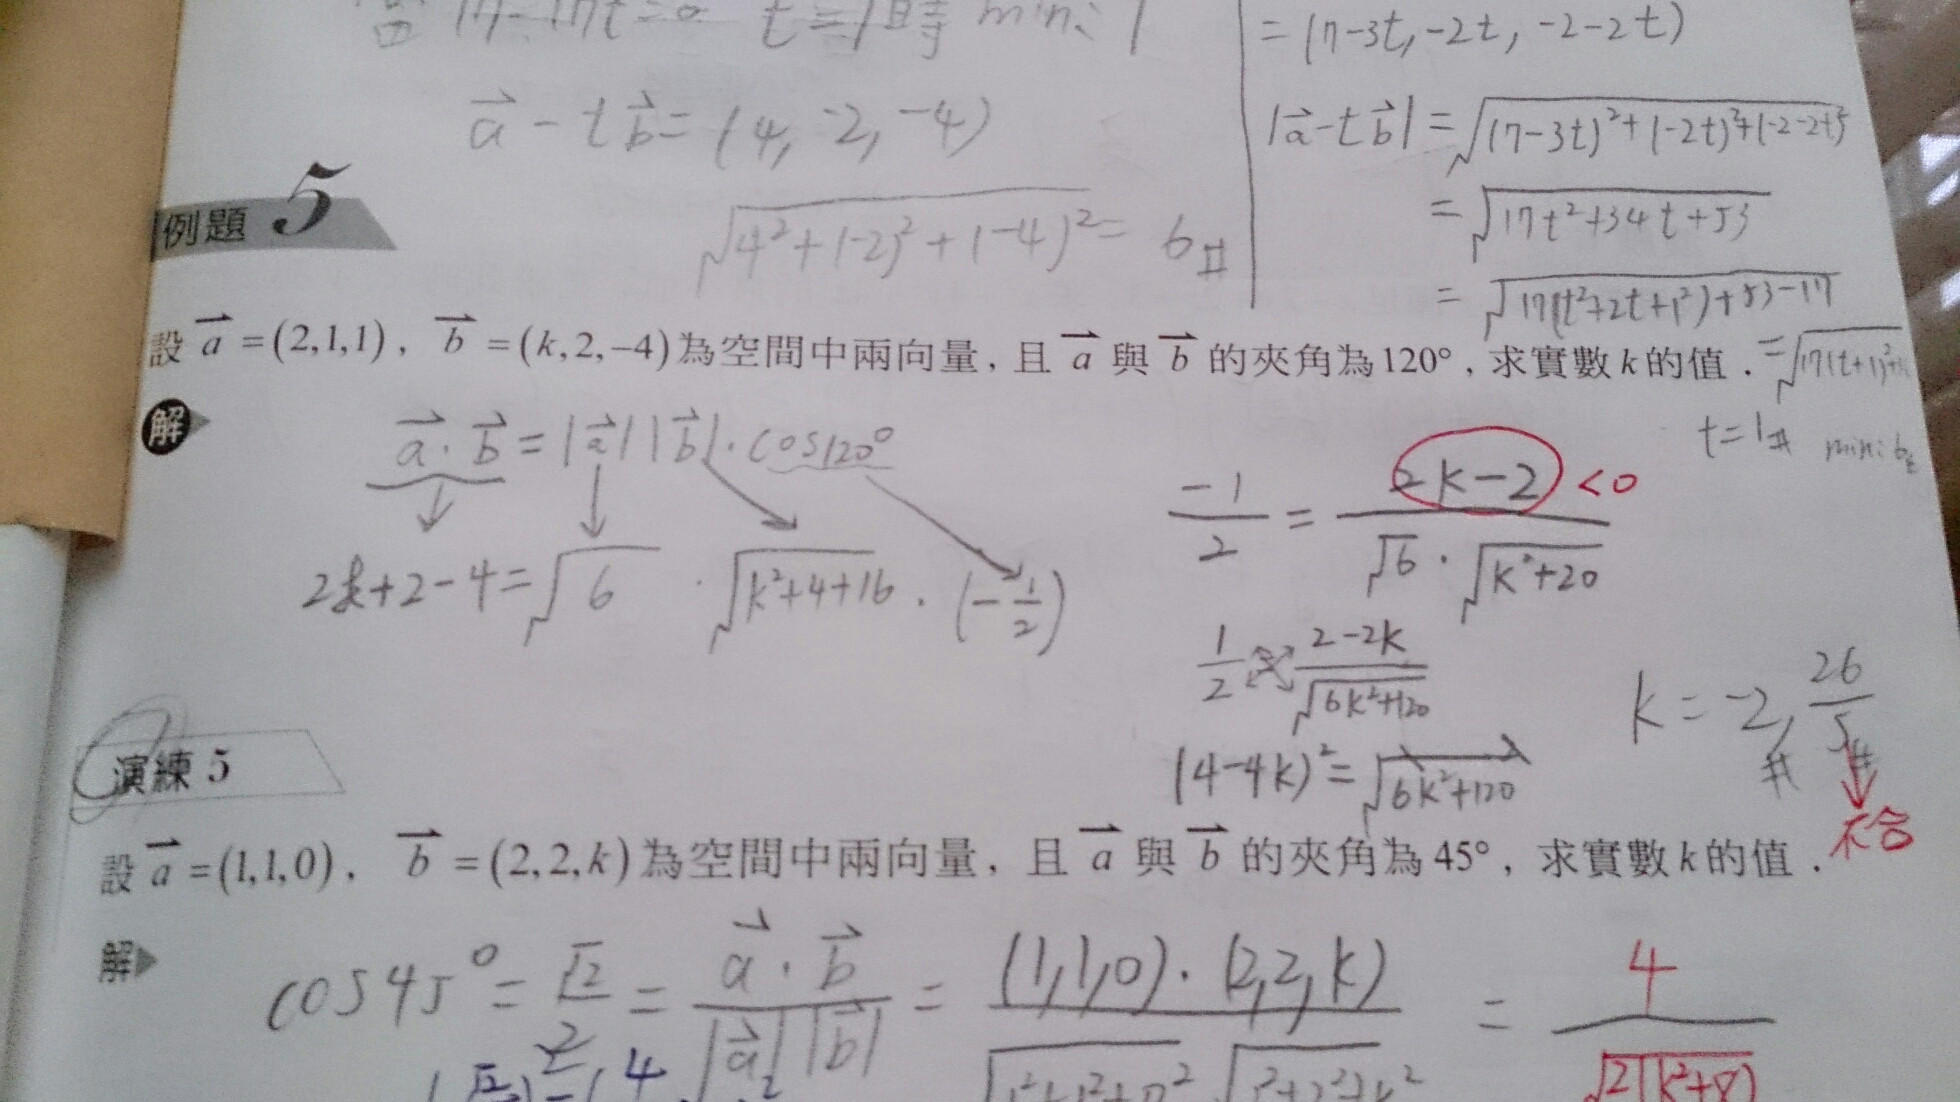 t=1時 min: 1
a - tb = (4, -2, -4)
√(4²+(-2)²+(-4)²) = 6#
= (7-3t, -2t, -2-2t)
|a-tb| = √((7-3t)²+(-2t)²+(-2-2t)²)
= √(17t²+34t+53)
= √(17(t²+2t+1²)+53-17)
t=1# min: 6#
例題 5
設 a =(2,1,1), b =(k,2,-4)為空間中兩向量, 且 a 與 b 的夾角為120°, 求實數 k 的值.
解
a · b = |a| |b| · cos120°
2k+2-4 = √6 · √(k²+4+16) · (-1/2)
-1/2 = (2k-2)/(√6 · √(k²+20)) <0
1/2 (2-2k)/√(6k²+120)
(4-4k)² = √(6k²+120)
k = -2#, 26/5#
不合
演練 5
設 a =(1,1,0), b =(2,2,k)為空間中兩向量, 且 a 與 b 的夾角為 45°, 求實數 k 的值.
解
cos45° = √2/2 = (a · b)/(|a| |b|) = (1,1,0)·(2,2,k) = 4/√(2(k²+8))